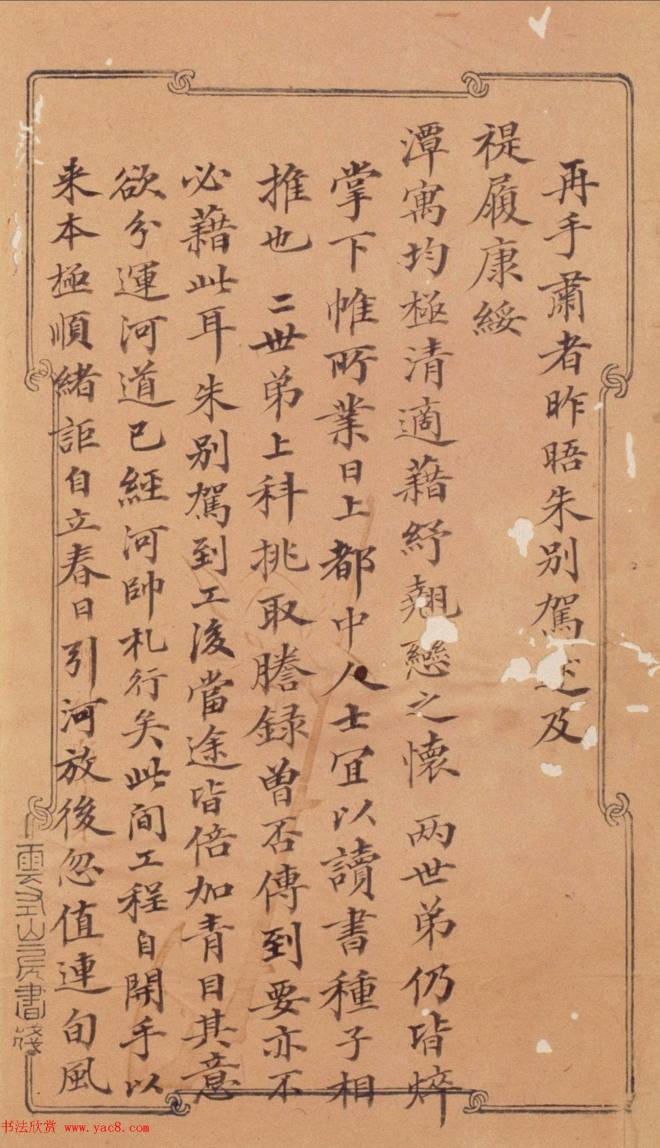 再手肅者昨晤朱别駕述及
禔履康綏
潭寓均極清適藉紓翹戀之懷 两世弟仍皆焠
掌下帷所業日上都中人士宜以讀書種子相
推也 二世弟上科挑取謄録曾否傳到要亦不
必藉此耳朱别駕到工後當途皆倍加青目其意
欲分運河道已經河帥札行矣此间工程自開手以
来本極順緒詎自立春日引河放後忽值連旬風
山房書箋
书法欣赏 www.yac8.com